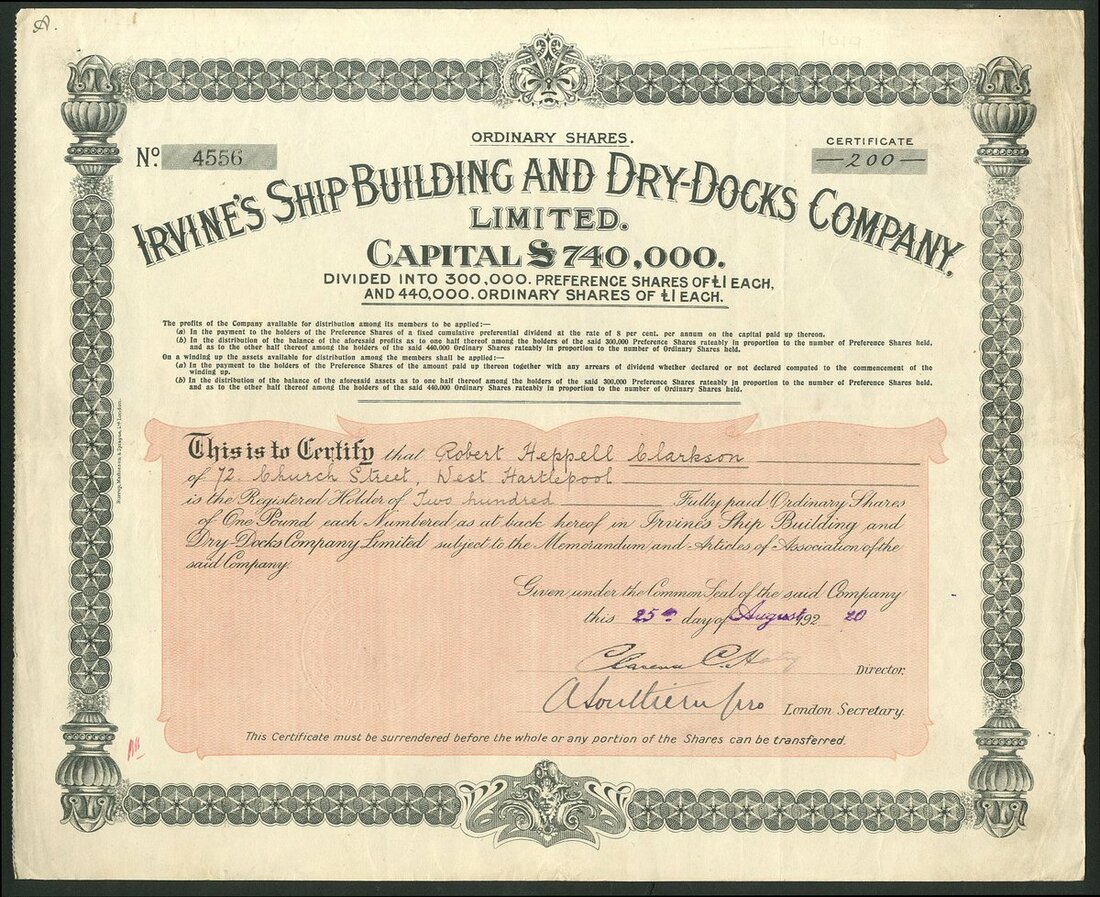 ORDINARY SHARES.
No. 4556
CERTIFICATE
—200—
IRVINE'S SHIP BUILDING AND DRY-DOCKS COMPANY,
LIMITED.
CAPITAL £740,000.
DIVIDED INTO 300,000. PREFERENCE SHARES OF £1 EACH,
AND 440,000. ORDINARY SHARES OF £1 EACH.
The profits of the Company available for distribution among its members to be applied:—
(a) In the payment to the holders of the Preference Shares of a fixed cumulative preferential dividend at the rate of 8 per cent. per annum on the capital paid up thereon.
(b) In the distribution of the balance of the aforesaid profits as to one half thereof among the holders of the said 300,000 Preference Shares rateably in proportion to the number of Preference Shares held.
and as to the other half thereof among the holders of the said 440,000 Ordinary Shares rateably in proportion to the number of Ordinary Shares held.
On a winding up the assets available for distribution among the members shall be applied:—
(a) In the payment to the holders of the Preference Shares of the amount paid up thereon together with any arrears of dividend whether declared or not declared computed to the commencement of the
winding up.
(b) In the distribution of the balance of the aforesaid assets as to one half thereof among the holders of the said 300,000 Preference Shares rateably in proportion to the number of Preference Shares held.
and as to the other half thereof among the holders of the said 440,000 Ordinary Shares rateably in proportion to the number of Ordinary Shares held.
This is to Certify that Robert Heppell Clarkson
of 72. Church Street, West Hartlepool
is the Registered Holder of Two hundred Fully paid Ordinary Shares
of One Pound each Numbered as at back hereof in Irvine's Ship Building and
Dry-Docks Company Limited subject to the Memorandum and Articles of Association of the
said Company.
Given under the Common Seal of the said Company
this 25th day of August 192 20
Director.
pro London Secretary.
This Certificate must be surrendered before the whole or any portion of the Shares can be transferred.